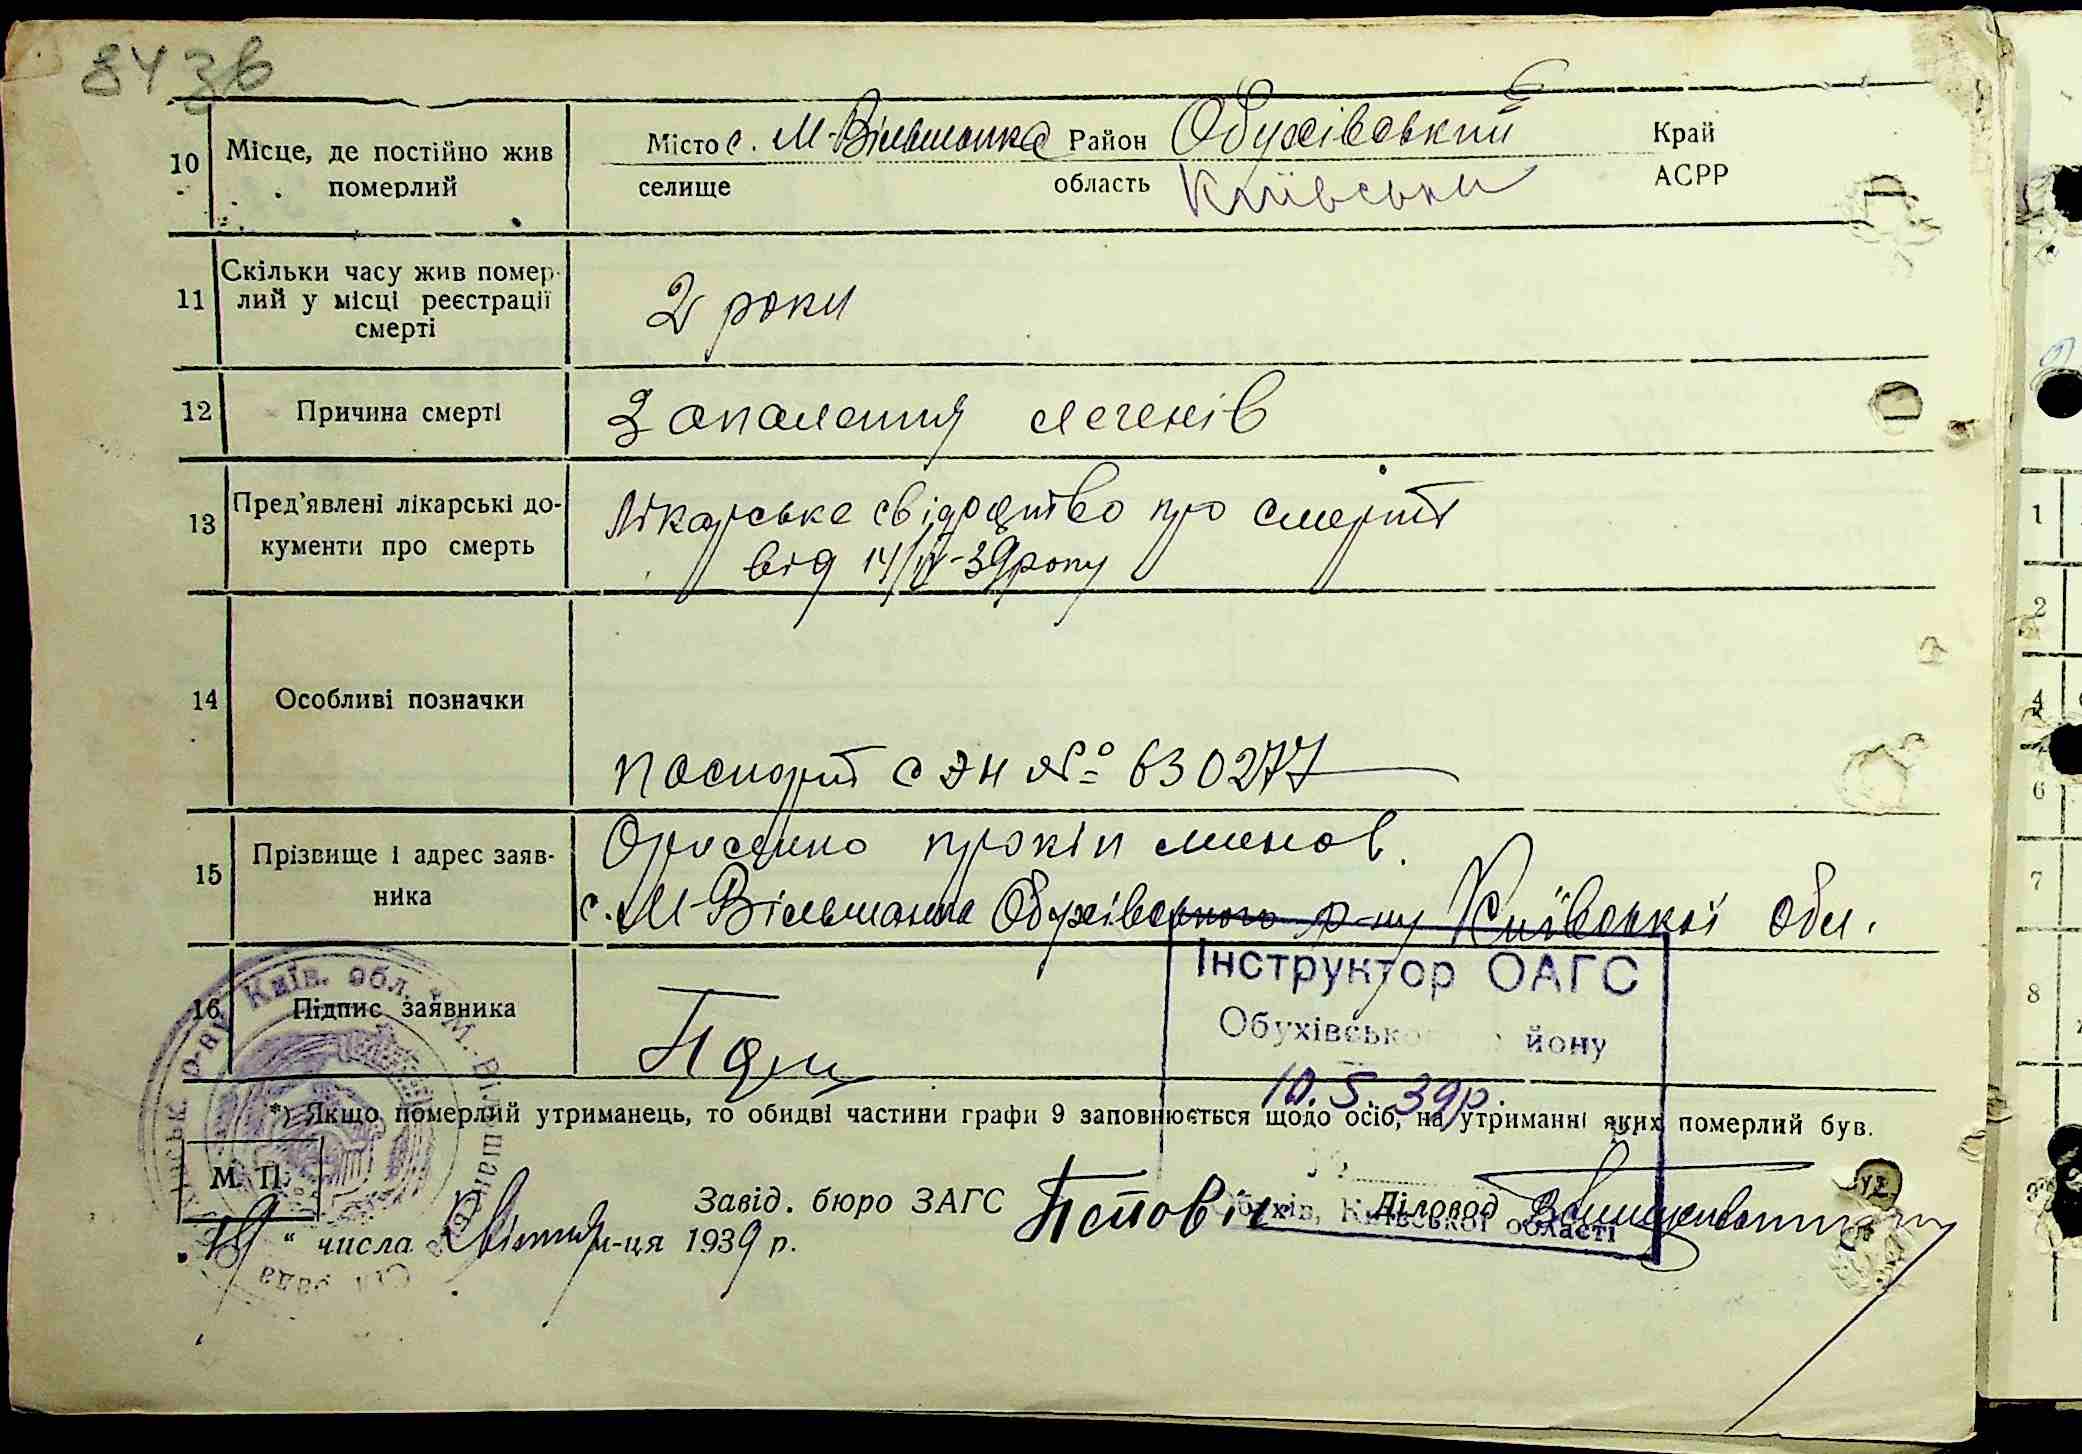 84 зв
10 Місце, де постійно жив померлий
Місто с. М-Вільшанка Район Обухівський Край
селище область Київська АСРР
11 Скільки часу жив померлий у місці реєстрації смерті
2 роки
12 Причина смерті
Запалення легенів
13 Пред'явлені лікарські документи про смерть
Лікарське свідоцтво про смерть
від 14/IV-39 року
14 Особливі позначки
Паспорт с ЭН № 630277
15 Прізвище і адрес заявника
прокіп
с. М-Вільшанка Обухівського р-ну Київської обл.
16 Підпис заявника
Інструктор ОАГС
Обухівсько йону
10.5.39р.
*) Якщо померлий утриманець, то обидві частини графи 9 заповнюється щодо осіб, на утриманні яких померлий був.
М. П.
Завід. бюро ЗАГС Діловод
Обухів, Київської області
" числа Квітня м-ця 1939 р.
Київ. обл. М.-Вільшанська Сіл рада
1
2
4
6
7
8